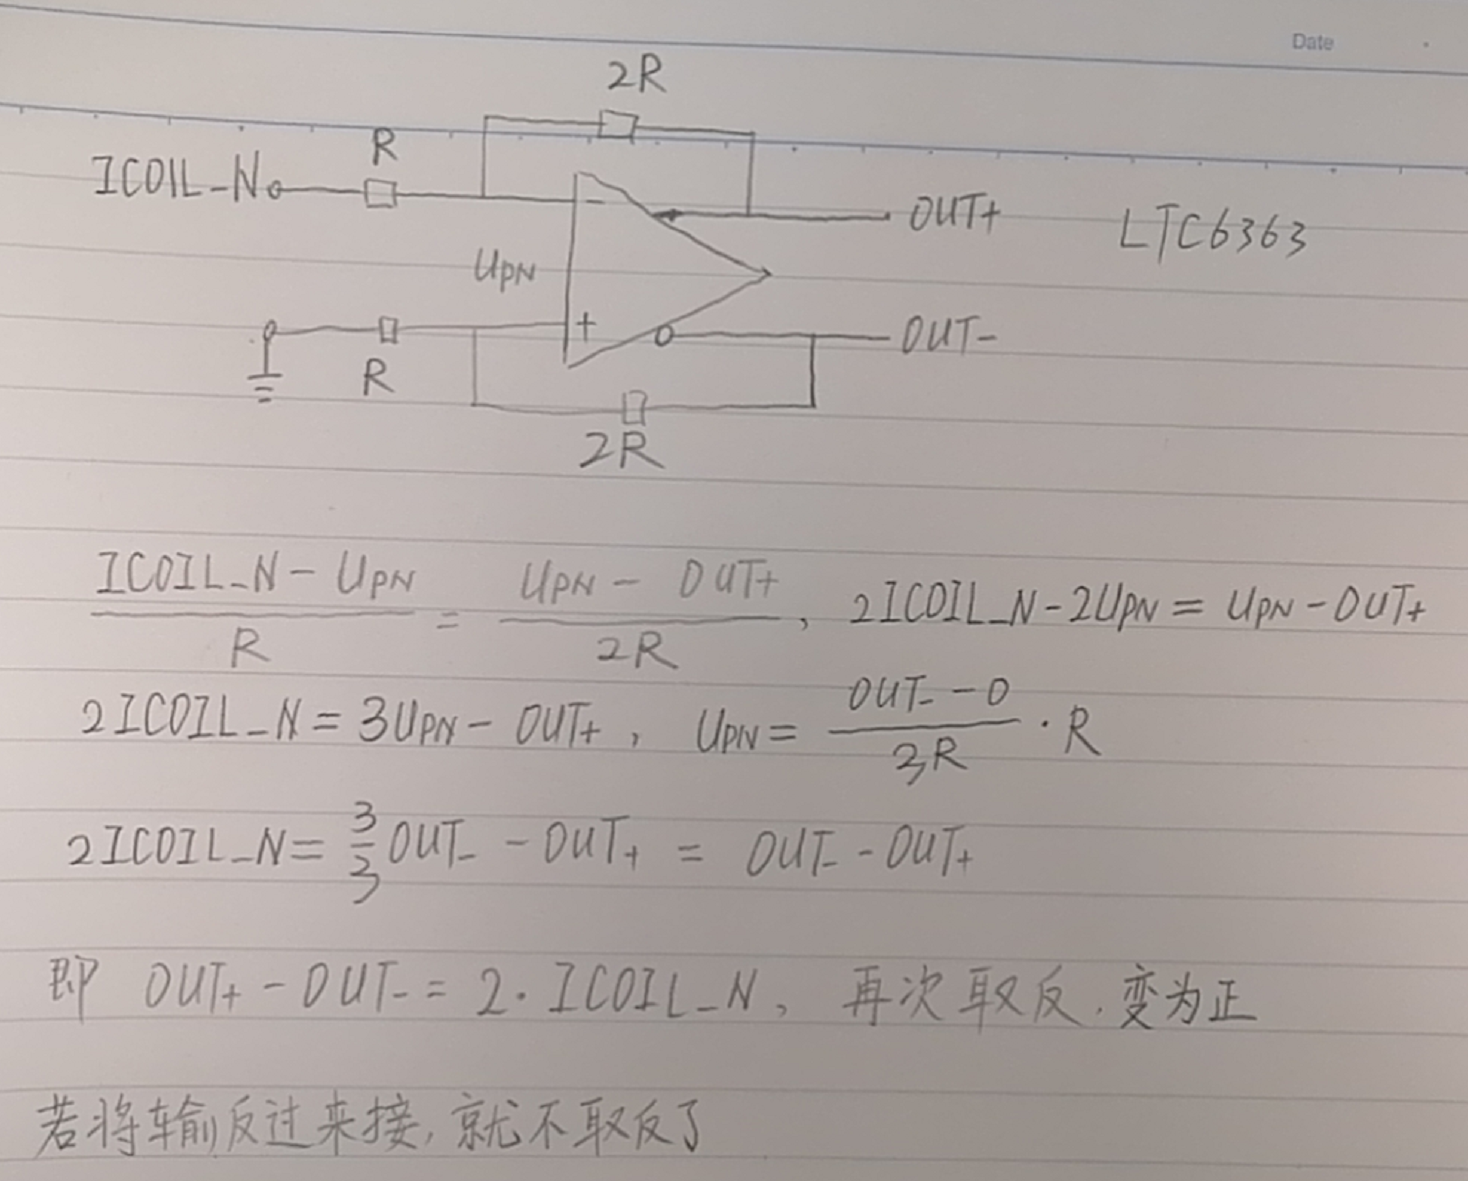 Date
2R
R
ICOIL_N
OUT+
LTC6363
UPN
OUT-
R
2R
(ICOIL_N - UPN)/R = (UPN - OUT+)/2R , 2ICOIL_N - 2UPN = UPN - OUT+
2ICOIL_N = 3UPN - OUT+ , UPN = (OUT- - 0)/3R · R
2ICOIL_N = 3/3 OUT- - OUT+ = OUT- - OUT+
即 OUT+ - OUT- = 2·ICOIL_N, 再次取反, 变为正
若将输反过来接, 就不取反了